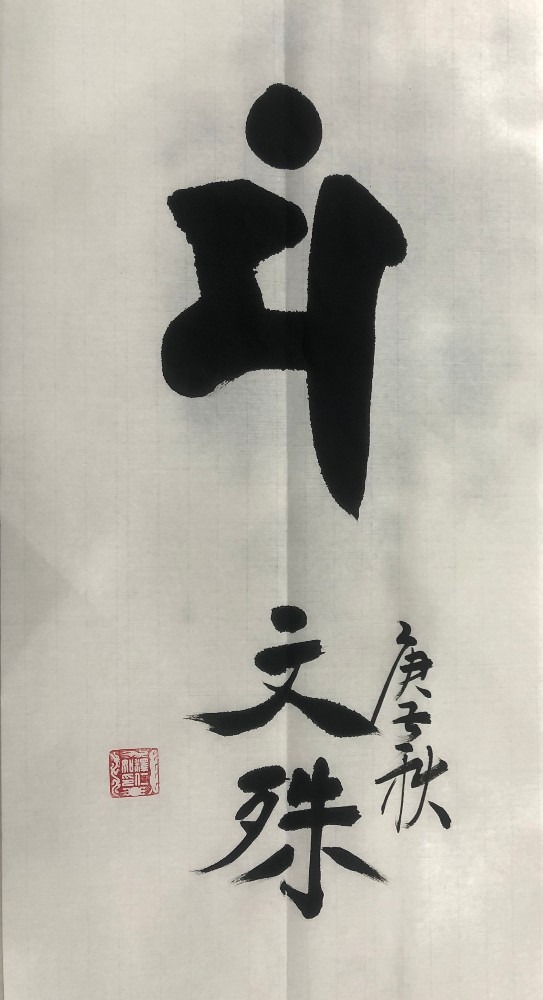 𑖦𑖽
文殊
庚子秋